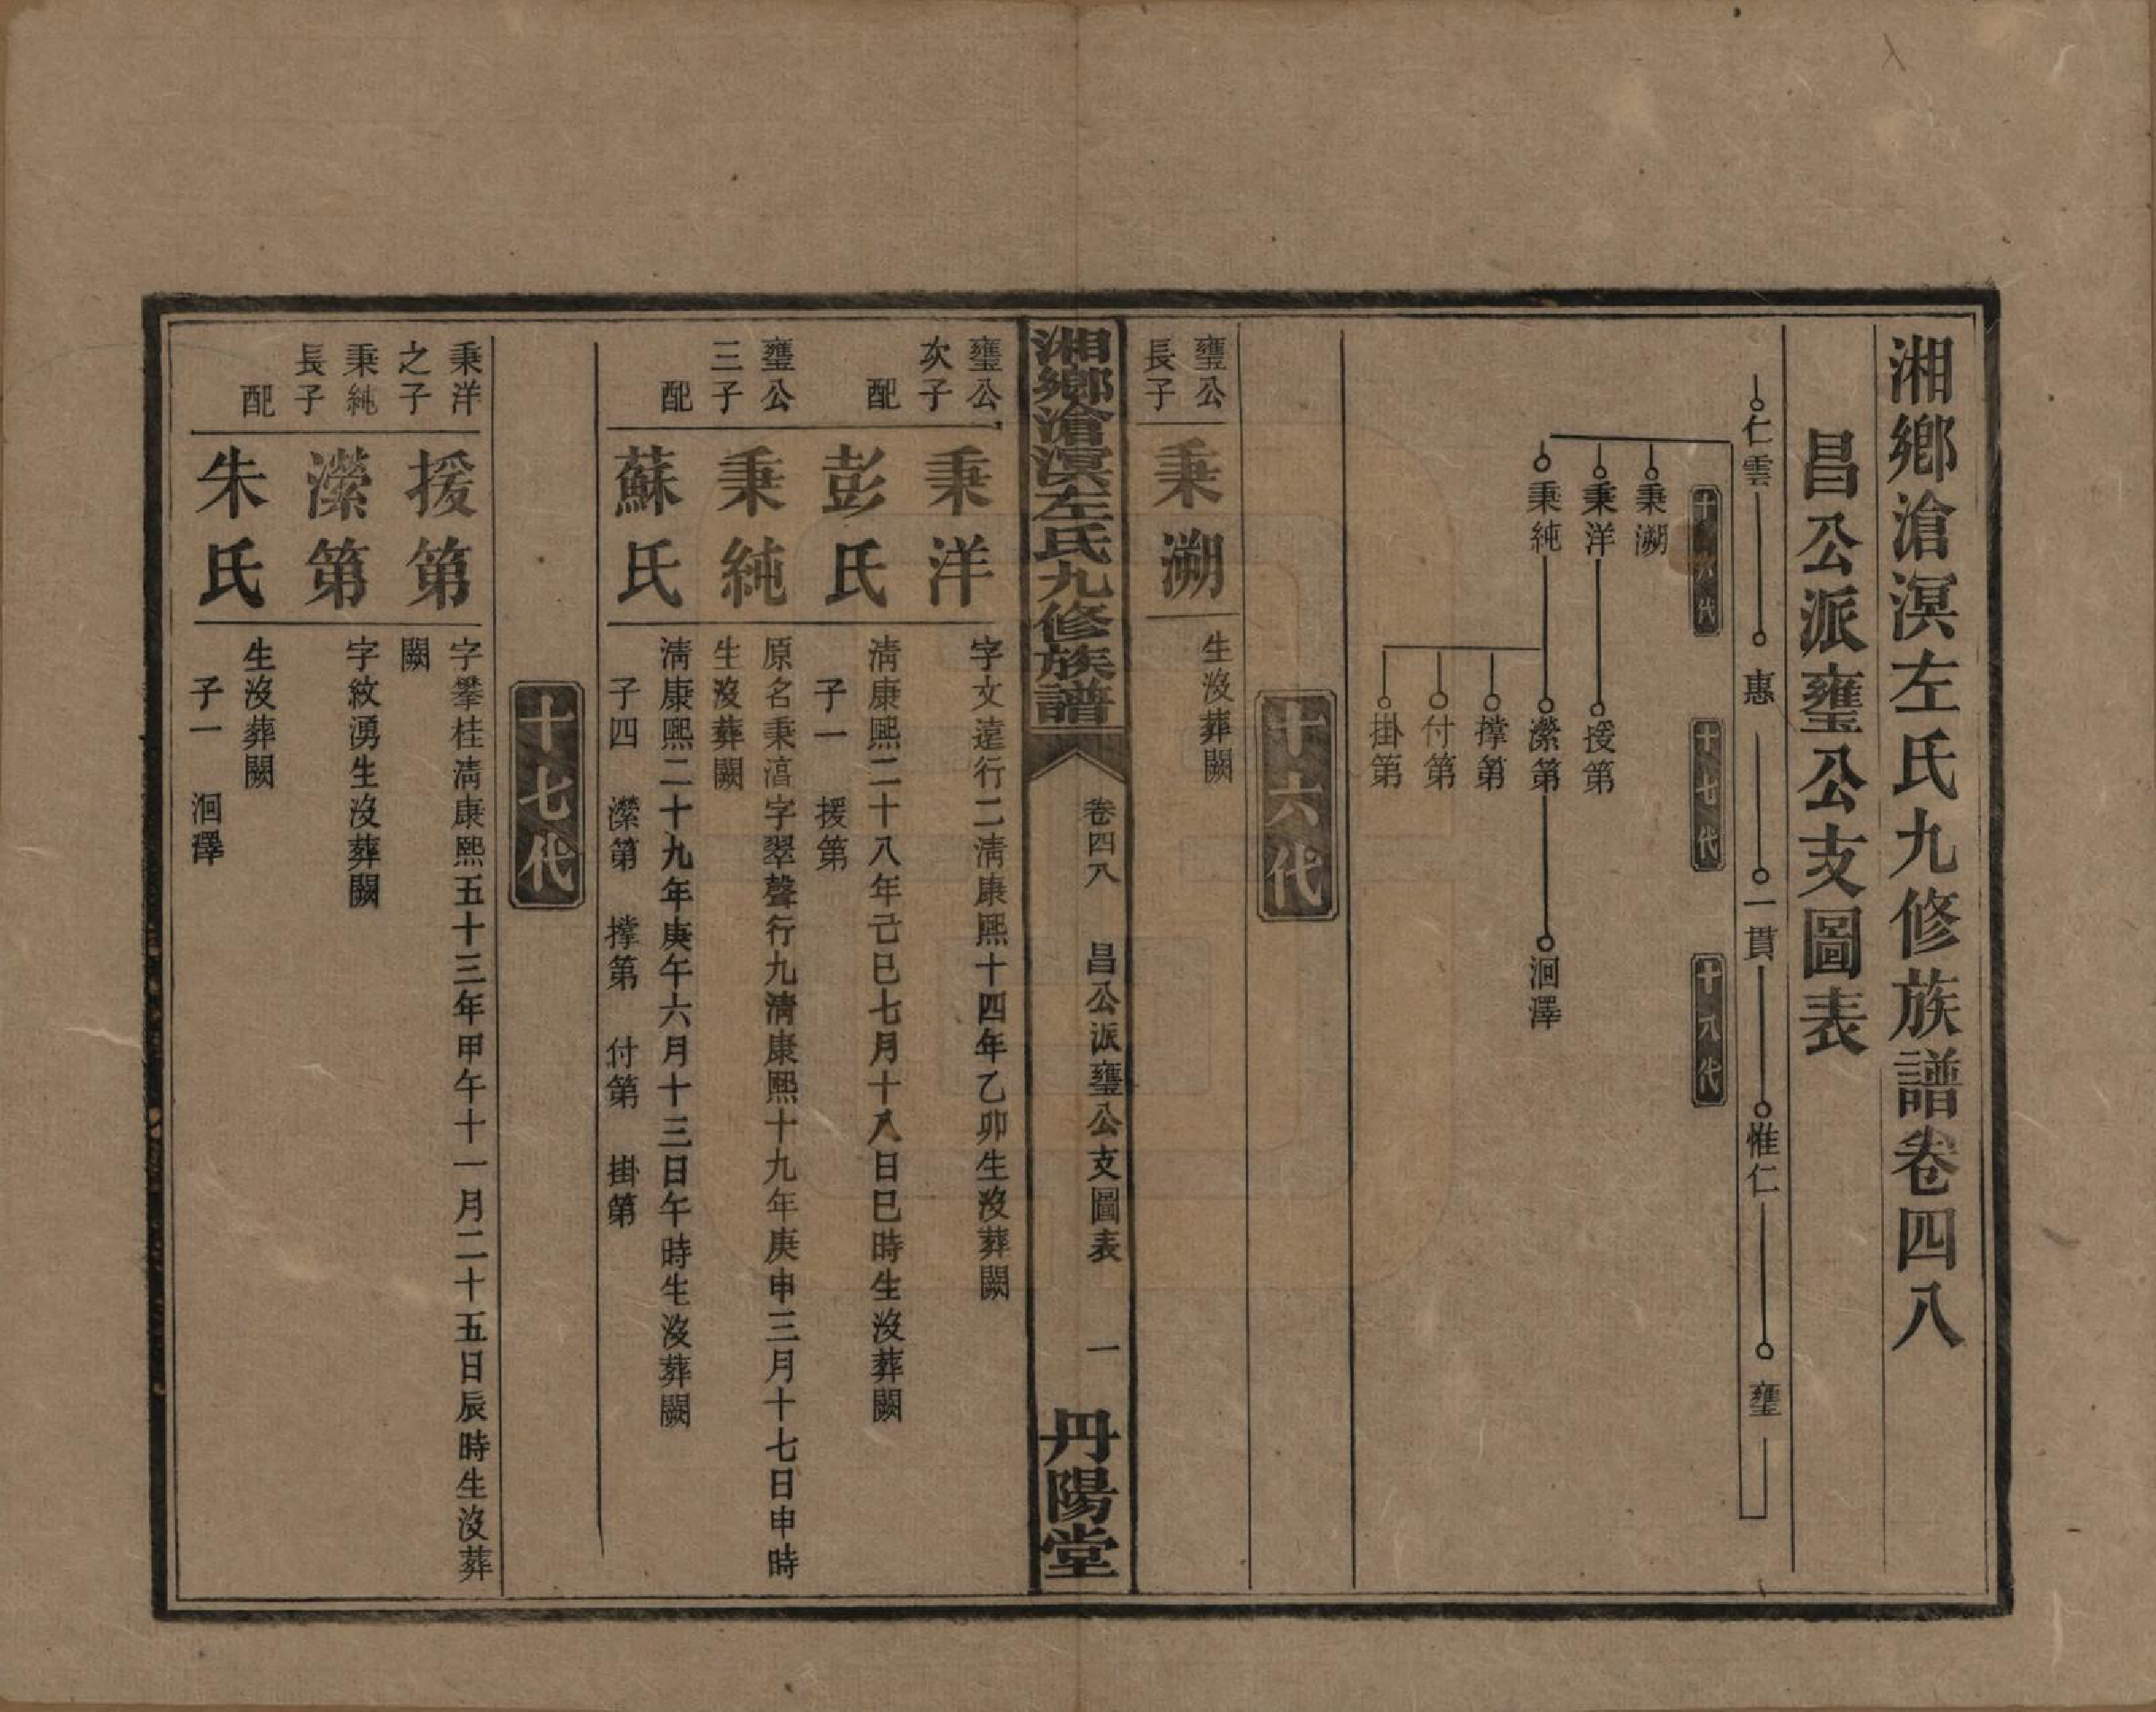 湘鄉滄溟左氏九修族譜卷四八
昌公派壅公支圖表
仁雲
惠
一貫
惟仁
壅
十六代
十七代
十八代
秉溯
秉洋
援第
秉純
濴第
洄澤
撑第
付第
掛第
十六代
壅公長子
秉溯
生沒葬闕
湘鄉滄溟左氏九修族譜
卷四八
昌公派壅公支圖表
一
丹陽堂
壅公次子
秉洋
字文遠行二清康熙十四年乙卯生沒葬闕
配
彭氏
清康熙二十八年己巳七月十八日巳時生沒葬闕
子一 援第
壅公三子
秉純
原名秉湻字翠聲行九清康熙十九年庚申三月十七日申時
生沒葬闕
配
蘇氏
清康熙二十九年庚午六月十三日午時生沒葬闕
子四 濴第 撑第 付第 掛第
十七代
秉洋之子
援第
字攀桂清康熙五十三年甲午十一月二十五日辰時生沒葬
闕
秉純長子
濴第
字紋湧生沒葬闕
配
朱氏
生沒葬闕
子一 洄澤